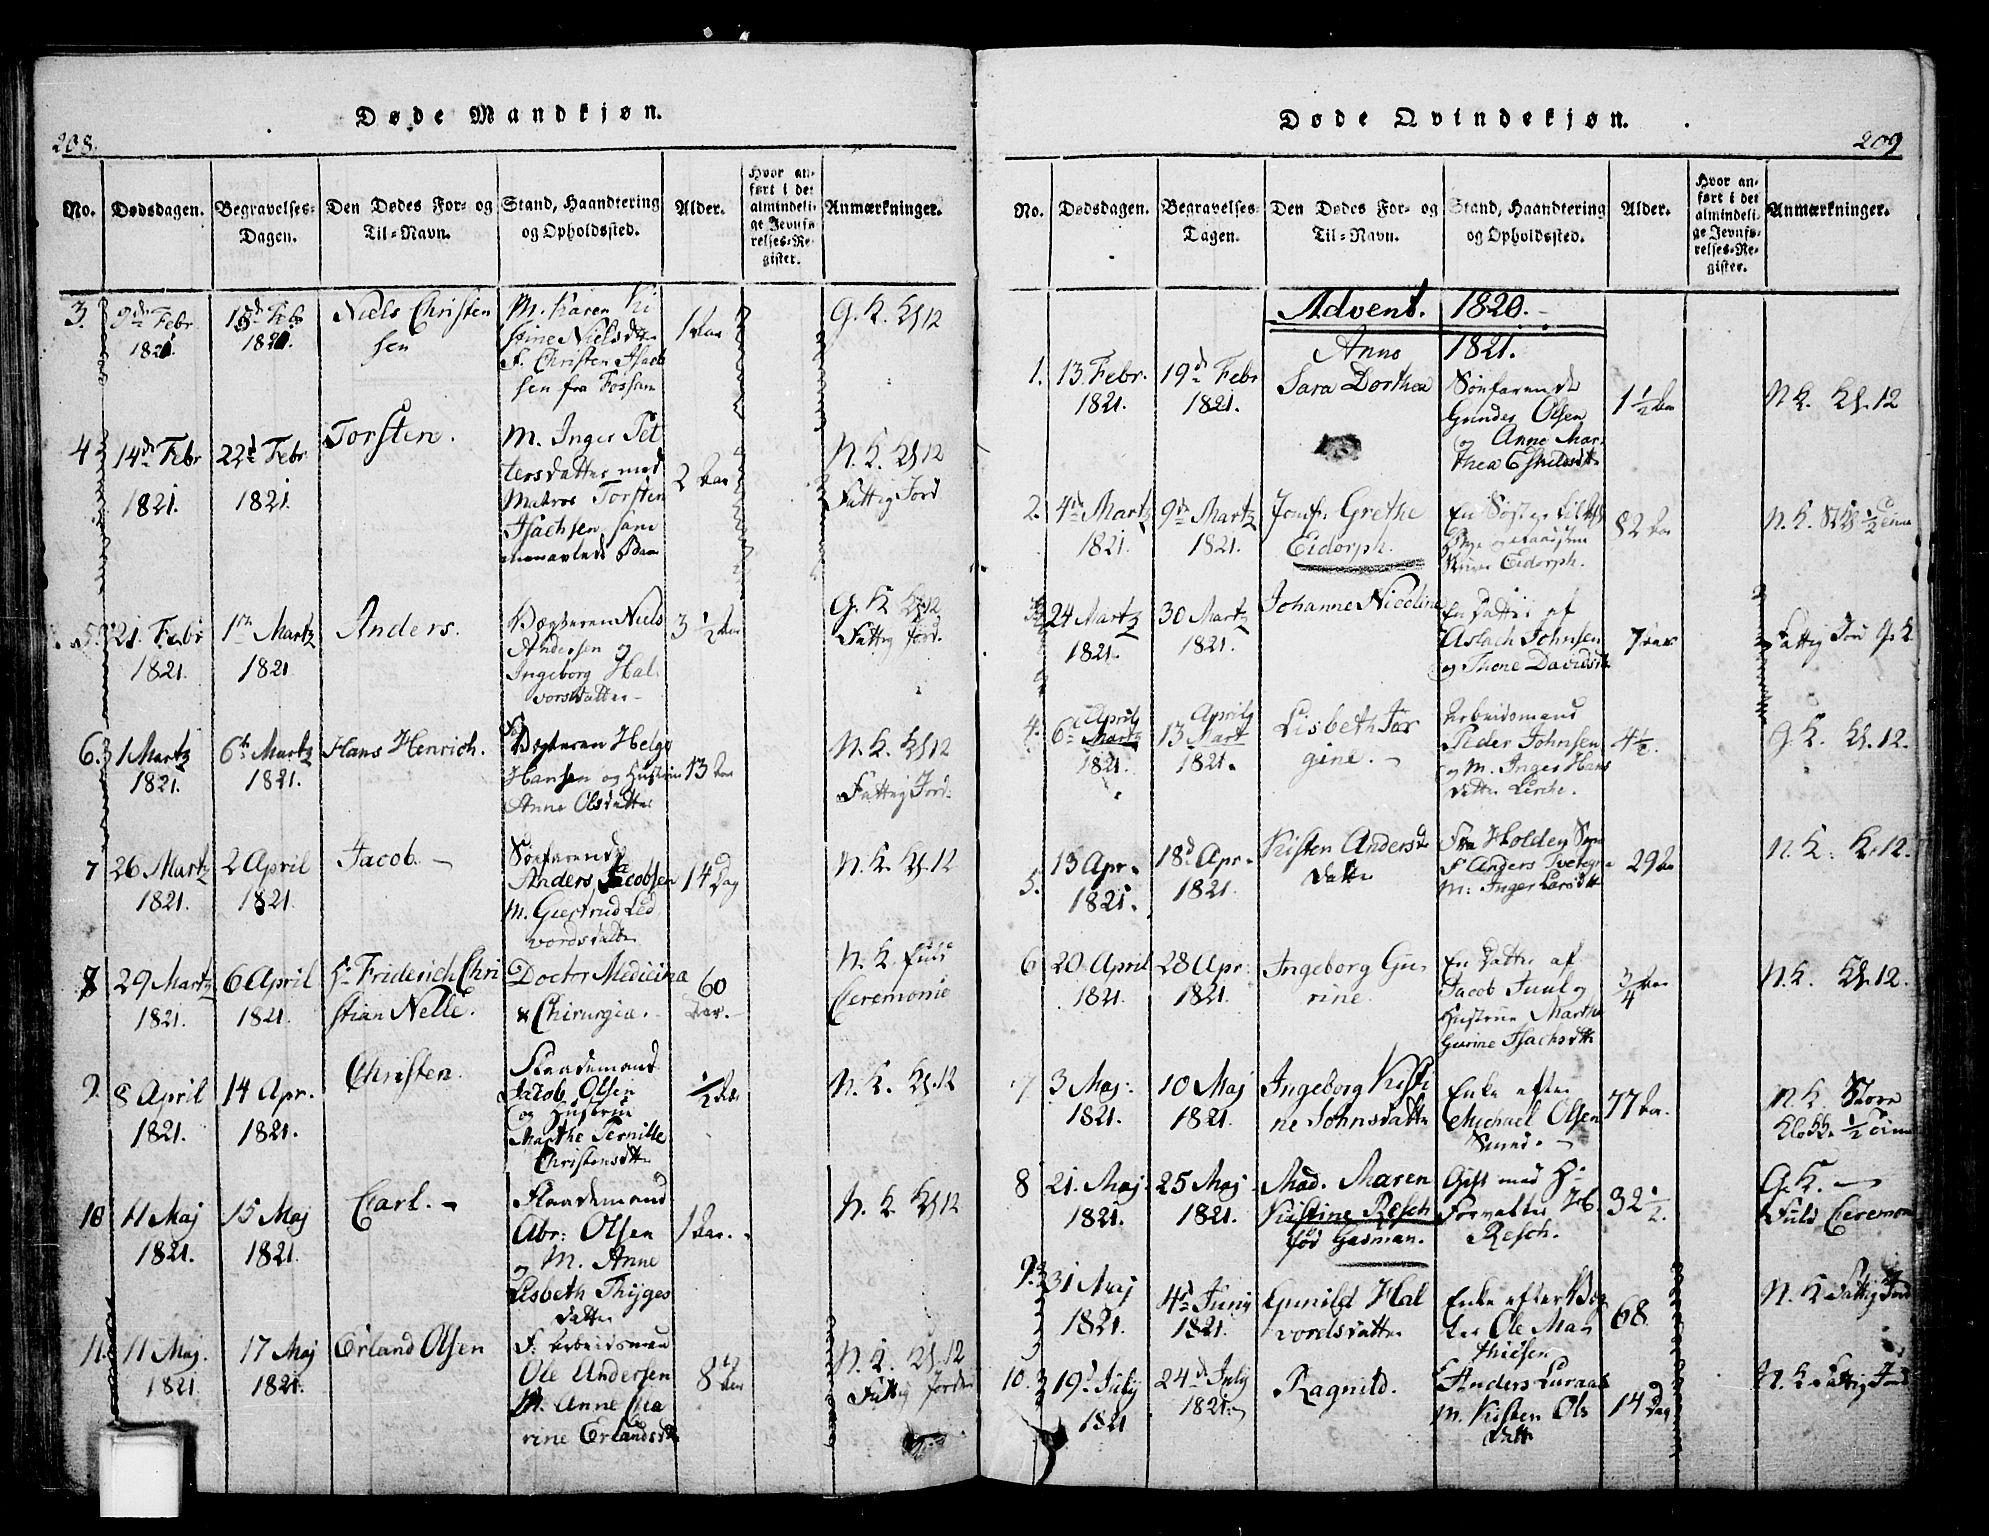 208.
Døde Mandkjøn.
No.
Dødsdagen.
Begravelses-
Dagen.
Den Dødes For- og
Til-Navn.
Stand, Haandtering
og Opholdssted.
Alder.
Hvor an-
ført i det
almindeli-
ge Jevnfø-
relses-Re-
gister.
Anmærkninger.
3.
9de Febr.
1821.
15de Feb
1821.
Niels Christen
sen
M. Karen Ki
stine Nielsdtr
F. Christen Isach
sen fra Fossum
1 Aar
G. K. Kl 12
4
14de Febr
1821.
22d Febr
1821
Torsten.
M. Inger Pet
tersdatter med
Matros Torsten
Isachsen sam
menavlede Barn
2 Aar
N. K. Kl 12
Fattig Jord
5
21. Febr
1821.
1ste Martz
1821
Anders.
Niels
Andersen og
Ingeborg Hal
vorsdatter
3 1/2 Aar
G. K Kl 12
Fattig Jord.
6.
1 Martz
1821.
6te Martz
1821.
Hans Henrich.
Helge
Hansen og Hustrue
Anne Olsdatter
13 Aar
N. K. Kl 12
Fattig Jord.
7
26 Martz
1821.
2 April
1821
Jacob. —
Søefarende
Anders Jacobsen
M. Giertrud Led
vordsdatter
14 Dag
N. K. Kl. 12
8
29 Martz
1821.
6 April
1821.
Hr Friderich Chri
stian Nelle.
Doctor Medicina
& Chirurgia.
60
Aar.
N. K. fuld
Ceremonie
9.
8 April
1821.
14 Apr.
1821.
Christen.
Jacob Olsen
og Hustrue
Marthe Pernille
Christensdtr
1/2 Aar
N. K. Kl. 12
10
11 Maj
1821.
15 Maj
1821.
Carl. —
Abr: Olsen
og M. Anne
Lisbeth Thyges
datter
1 Aar.
N. K. Kl 12
11.
11 Maj.
1821
17 Maj
1821.
Erland Olsen
F. Arbeidsmand
Ole Andersen
M. Anne Ca
rine Erlandsdtr
8 1/2
Aar
N. K. Kl. 12
Fattig Jorden
Døde Qvindekjøn.
209
No.
Dødsdagen.
Begravelses-
Dagen.
Den Dødes For- og
Til-Navn.
Stand, Haandtering
og Opholdssted.
Alder.
Hvor an-
ført i det
almindeli-
ge Jevnfø-
relses-Re-
gister.
Anmærkninger.
Advent. 1820.
Anno 1821.
1.
13. Febr.
1821.
19de Febr
1821.
Sara Dorthea
Søefarende
Gunder Olsen
og Anne Mar
thea Eskildsdtr
1 1/2 Aar
N K. Kl. 12
2.
4de Martz
1821.
9de Martz
1821.
Jomfr: Grethe
Eidorph.
En Søster til
Eidorph.
82 Aar
N. K.
3
24 Martz
1821.
30 Martz
1821.
Johanne Nicoline
En datter af
Aslach Johnsen
og Thone Davidsdtr
7 Aar
Fattig Jord G. K
4.
April
6te Martz
1821.
April
13 Mart
1821.
Lisbeth Jør
gine. —
Arbeidsmand
Peder Johnsen
og M. Inger Hans
datter Lerche.
4 1/2.
G. K. Kl. 12.
5.
13 Apr.
1821.
18d Apr.
1821.
Kisten Anders
datter
Fra Holden
F Anders
M: Inger Larsdtr
29 Aar
N. K: Kl 12.
6
20 April
1821.
28 Apr.
1821.
Ingeborg Gu
rine.
En datter af
Jacob Juul og
Hustrue Marthe
Gurine Isachsdtr
3/4 Aar
N. K. Kl. 12.
7
3 Maj:
1821.
10 Maj
1821.
Ingeborg Kisti
ne Johnsdatter
Enke efter
Michael Olsen
Smed. —
77 Aar.
N K. Store
Klokk. 1/2 Cerem
8
21. Maj.
1821.
25 Maj
1821.
Mad. Maren
Kistine Resch
fød Gasman.
Gift med Hr
Forvalter Job.
Resch.
32 1/2.
G. K. —
Fuld Ceremon
9.
31 Maj
1821.
4de Junij
1821.
Gunild Hal
vordsdatter
Enke efter
Ole Ma
thiesen
68
N. K Fattig Jord
10.
19d July
1821
24de July
1821.
Ragnild.
F Anders Luraas
M. Kisten Ols
datter
14 Dag
N. K Fattig Jord